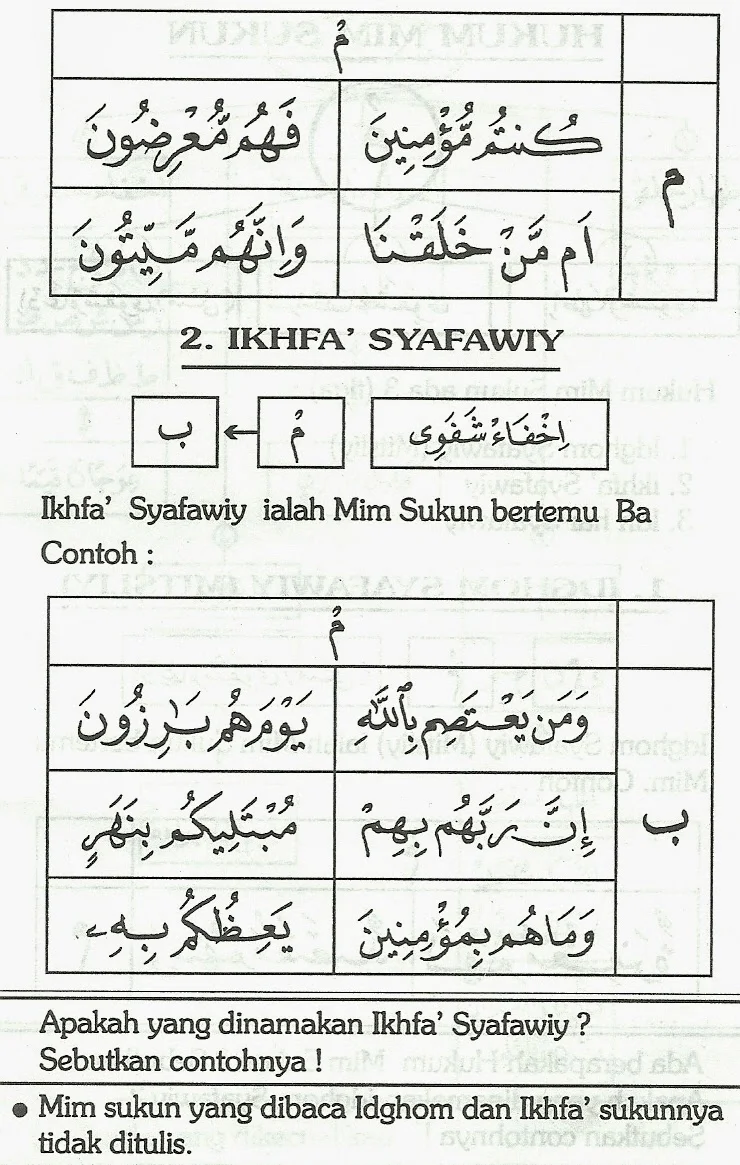 مْ
كُنتُم مُّؤْمِنِينَ فَهُم مُّعْرِضُونَ
م
اَم مَّنْ خَلَقْنَا وَاِنَّهُم مَّيِّتُونَ
2. IKHFA' SYAFAWIY
اِخْفَاءْ شَفَوِى مْ ← ب
Ikhfa' Syafawiy ialah Mim Sukun bertemu Ba
Contoh :
مْ
وَمَن يَعْتَصِم بِاللَّهِ يَوْمَ هُم بَـٰرِزُونَ
ب
إِنَّ رَبَّهُم بِهِمْ مُبْتَلِيكُم بِنَهَرٍ
وَمَاهُم بِمُؤْمِنِينَ يَعِظُكُم بِهِۦ
Apakah yang dinamakan Ikhfa' Syafawiy ?
Sebutkan contohnya !
• Mim sukun yang dibaca Idghom dan Ikhfa' sukunnya
tidak ditulis.